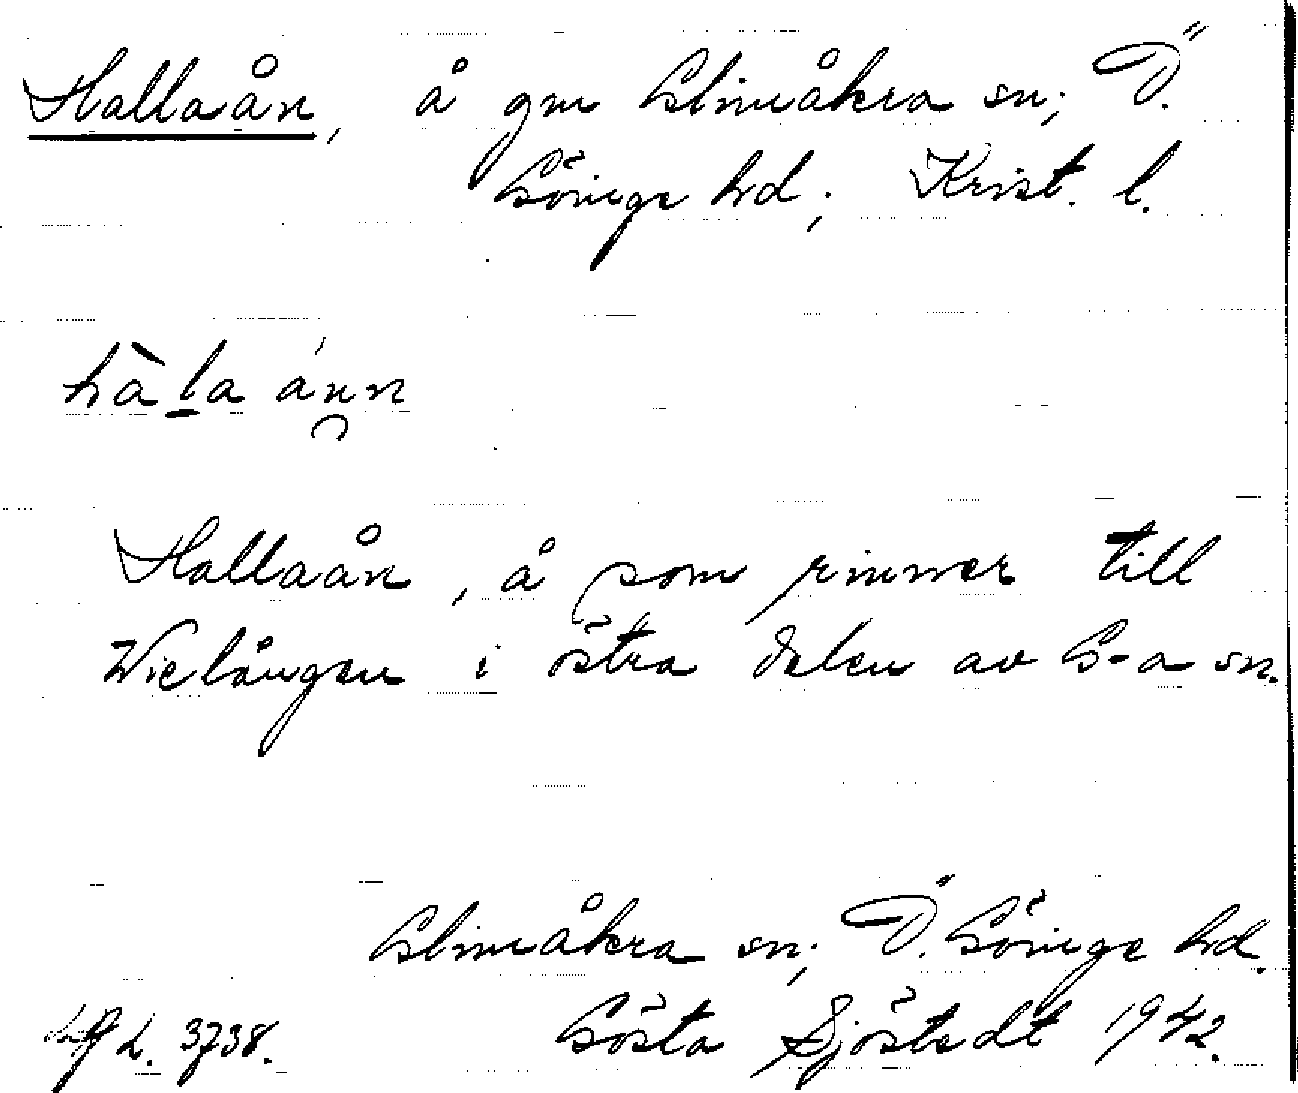 Hallaån, å gm Glimåkra sn; Ö.
Göinge hd; Krist. l.
hàla ánn
Hallaån, å som rinner till
Vielången i östra delen av G-a sn.
Glimåkra sn; Ö. Göinge hd.
3738. Gösta Sjöstedt 1942.